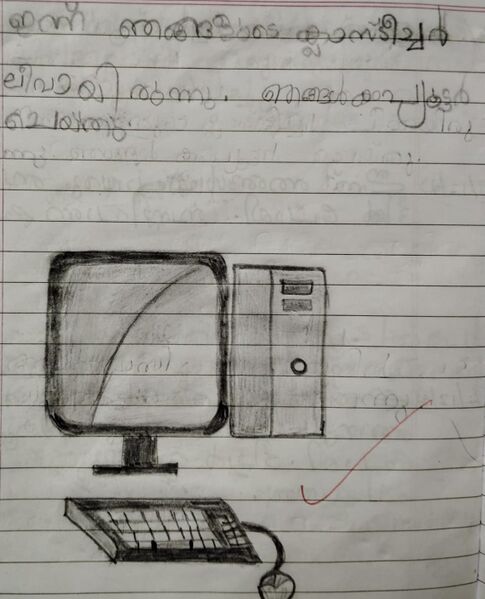 ഇന്ന് ഞങ്ങളുടെ ക്ലാസ്ടീച്ചർ
ലീവായിരുന്നു. ഞങ്ങൾ കമ്പ്യൂട്ടർ
ചെയ്തു.